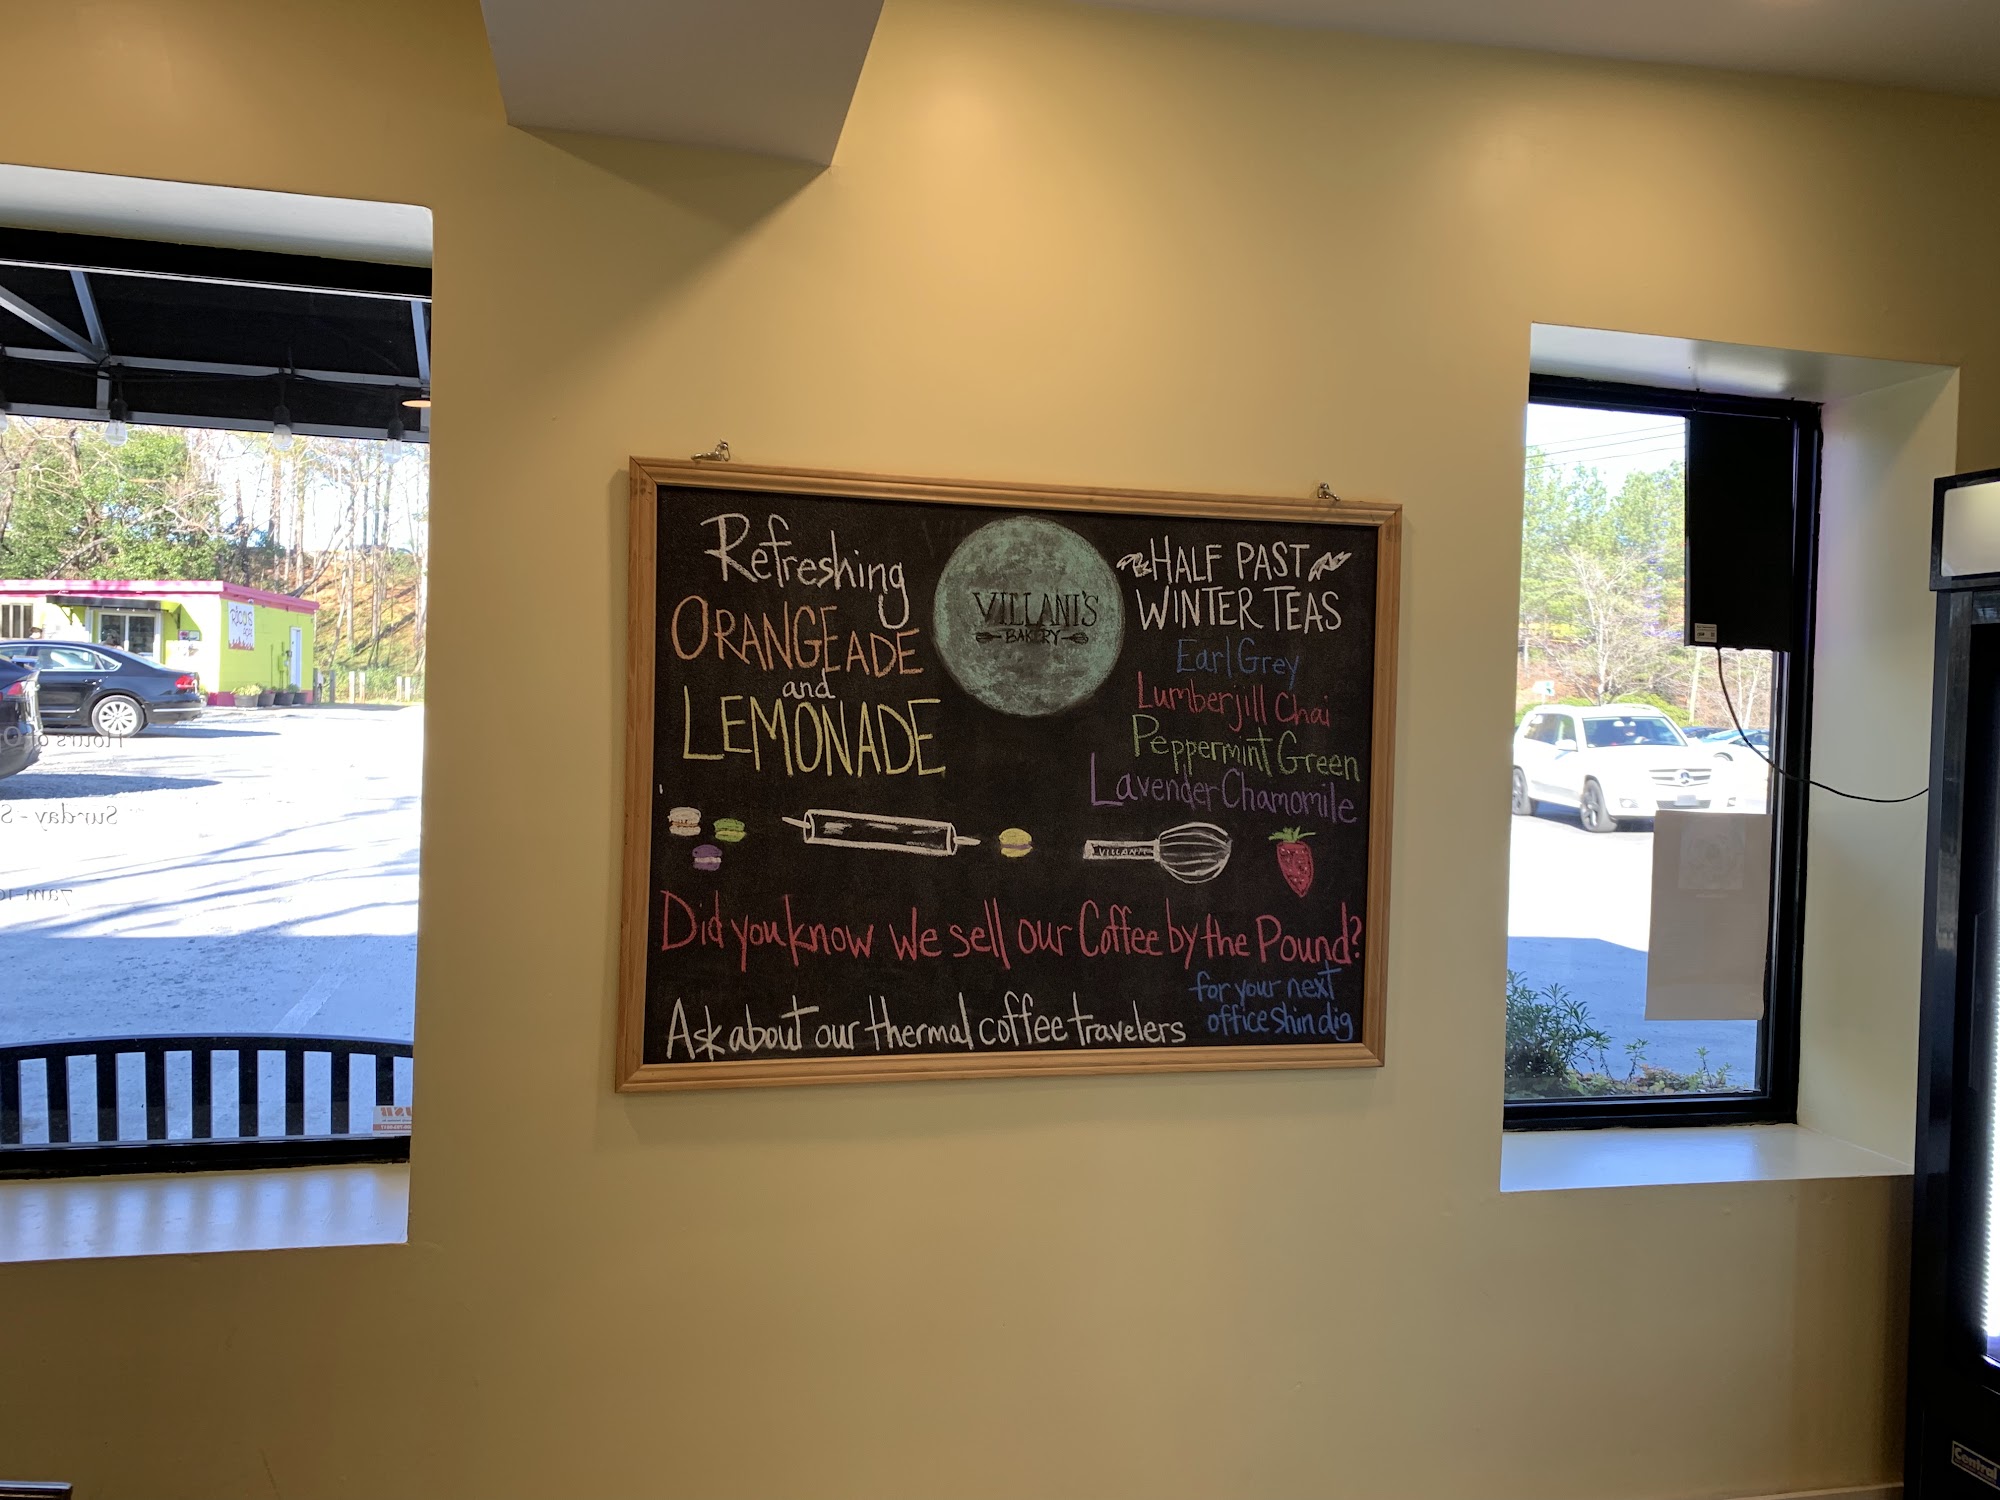 Refreshing
ORANGEADE
and
LEMONADE
VILLANI'S
BAKERY
HALF PAST
WINTER TEAS
Earl Grey
Lumberjill Chai
Peppermint Green
Lavender Chamomile
VILLANI'S
Did you know we sell our Coffee by the Pound?
Ask about our thermal coffee travelers
for your next
office shindig
Hours of O
Sunday - S
7am-
Central